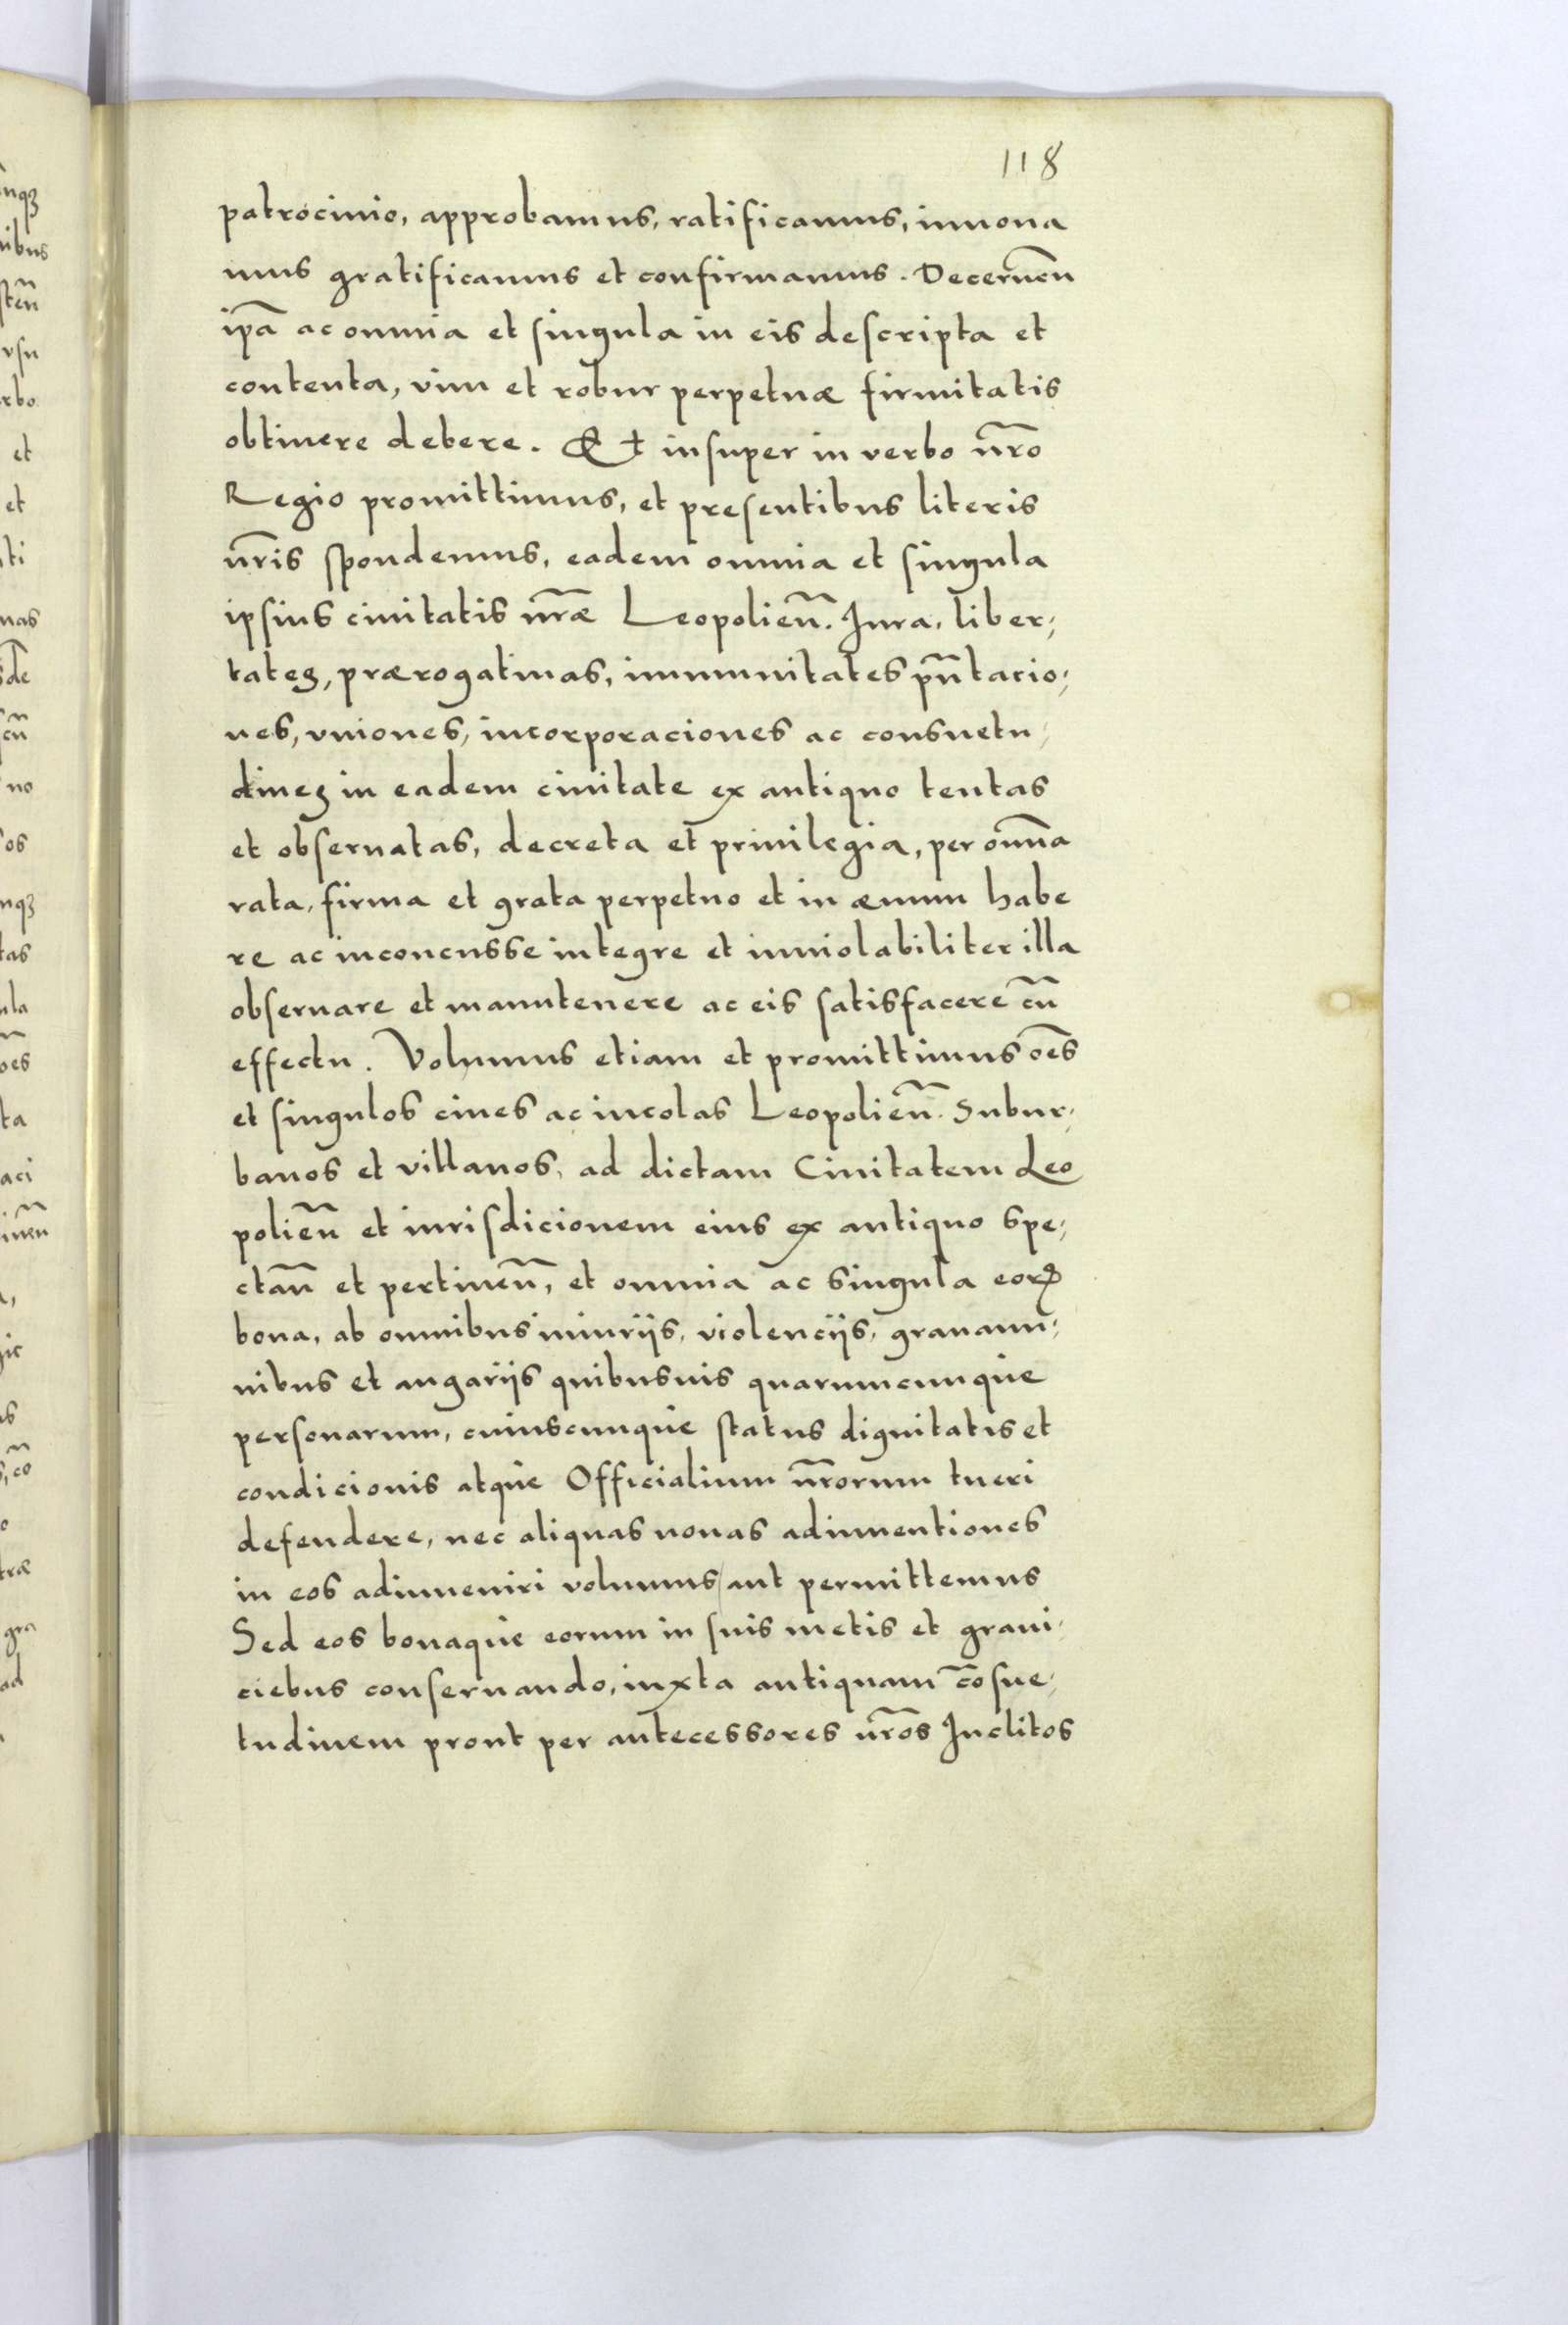 118
patrocinio, approbamus, ratificamus, innoua
mus gratificamus et confirmamus. Decernen̄
ip̄a ac omnia et singula in eis descripta et
contenta, vim et robur perpetuæ firmitatis
obtinere debere. Et insuper in verbo nr̄o
Regio promittimus, et presentibus literis
nr̄is spondemus, eadem omnia et singula
ipsius ciuitatis nr̄æ Leopolien̄. Jura, liber,
tates, prærogatiuas, immunitates pn̄tacio,
nes, vniones, incorporaciones ac consuetu,
dines in eadem ciuitate ex antiquo tentas
et obseruatas, decreta et priuilegia, per omn̄a
rata, firma et grata perpetuo et in æuum habe
re ac inconcusse integre et inuiolabiliter illa
obseruare et manutenere ac eis satisfacere cū
effectu. Volumus etiam et promittimus oēs
et singulos ciues ac incolas Leopolien̄. Subur,
banos et villanos, ad dictam Ciuitatem Leo
polien̄ et iurisdicionem eius ex antiquo spe,
ctan̄ et pertinen̄, et omnia ac singula eorꝝ
bona, ab omnibus iniurijs, violencijs, grauami,
nibus et angarijs quibusuis quarumcunque
personarum, cuiuscunque status dignitatis et
condicionis atque Officialium nr̄orum tueri
defendere, nec aliquas nouas adinuentiones
in eos adinueniri volumus/ aut permittemus
Sed eos bonaque eorum in suis metis et grani,
ciebus conseruando, iuxta antiquam cōsue,
tudinem prout per antecessores nr̄os Inclitos